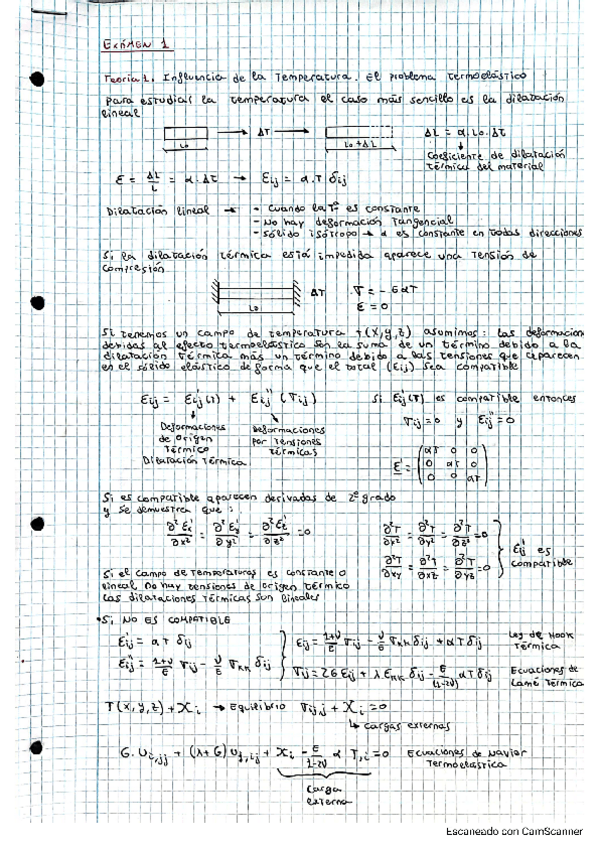 EXÁMEN 1
Teoría 1. Influencia de la Temperatura. El problema termoelástico
Para estudiar la temperatura el caso más sencillo es la dilatación
lineal
L0 → ΔT → L0+ΔL ΔL = α.L0.Δt
Coeficiente de dilatación
térmica del material
ε = ΔL/L = α.Δt → εij = α.T δij
Dilatación lineal → - Cuando la Tª es constante
- No hay deformación tangencial
- Sólido isótropo → α es constante en todas direcciones
Si la dilatación térmica está impedida aparece una tensión de
compresión.
L0 ΔT σ = - EαT
ε = 0
Si tenemos un campo de temperatura T(x,y,z) asumimos: Las deformacion
debidas al efecto termoelástico son la suma de un término debido a la
dilatación térmica más un término debido a las tensiones que aparecen
en el sólido elástico de forma que el total (εij) sea compatible
εij = ε'ij(T) + ε''ij (σij) Si ε'ij(T) es compatible entonces
σij = 0 y ε''ij = 0
Deformaciones de origen térmico
Dilatación térmica
Deformaciones por tensiones térmicas
ε' = (αT 0 0
0 αT 0
0 0 αT)
Si es compatible aparecen derivadas de 2º grado
y se demuestra que:
∂²εx'/∂x² = ∂²εy'/∂y² = ∂²εz'/∂z² = 0
∂²T/∂x² = ∂²T/∂y² = ∂²T/∂z² = 0
∂²T/∂xy = ∂²T/∂xz = ∂²T/∂yz = 0
ε'ij es compatible
Si el campo de temperaturas es constante o
lineal no hay tensiones de origen térmico
Las dilataciones térmicas son lineales
• Si NO ES COMPATIBLE
ε'ij = α T δij
ε''ij = 1+ν/E σij - ν/E σkk δij
εij = 1+ν/E σij - ν/E σkk δij + αT δij Ley de Hook Térmica
σij = 2G εij + λ εkk δij - E/(1-2ν) αT δij Ecuaciones de Lamé Térmica
T(x,y,z) + Xi → Equilibrio σij,j + Xi = 0
↳ cargas externas
G. ui,jj + (λ+G) uj,ij + Xi - E/1-2ν α T,i = 0 Ecuaciones de Navier
Termoelástica
Carga
externa
Escaneado con CamScanner